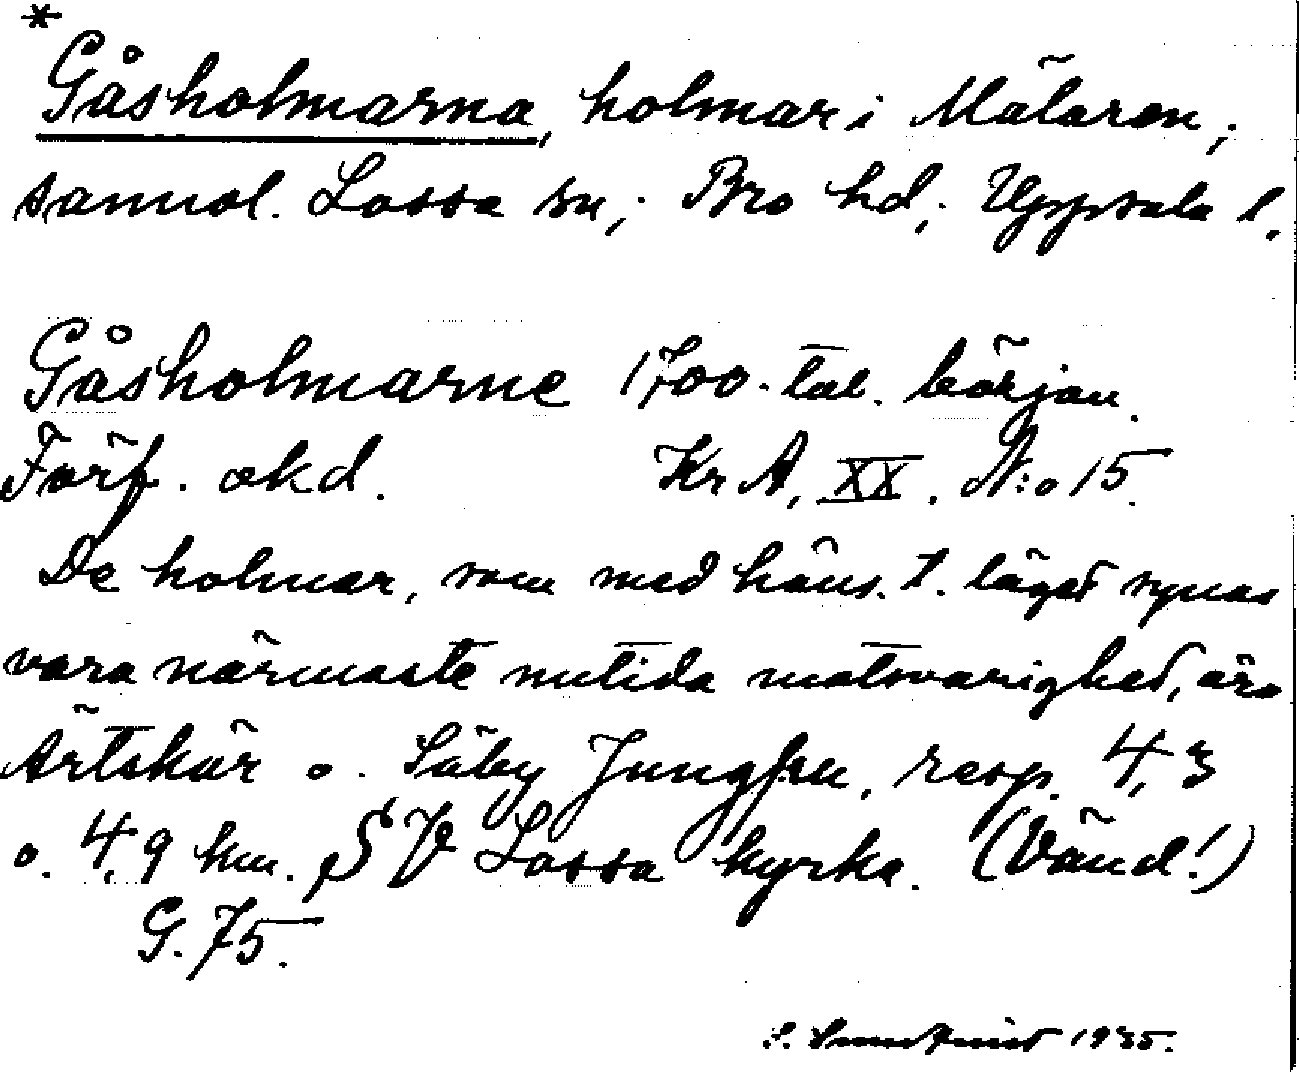 *
Gåsholmarna, holmar i Mälaren,
Lossa sn, Bro hd, Uppsala l.
Gåsholmarne 1700-tal. början.
Förf. okd. Kr A, XX. N:o 15.
De holmar, som med häns. t. läget synas
vara närmaste nutida motsvarighet, äro
Ärtskär o. Säby Jungfru, resp. 4,3
o. 4,9 km. SV Lossa kyrka. (Vänd!)
G. 75.
1935.